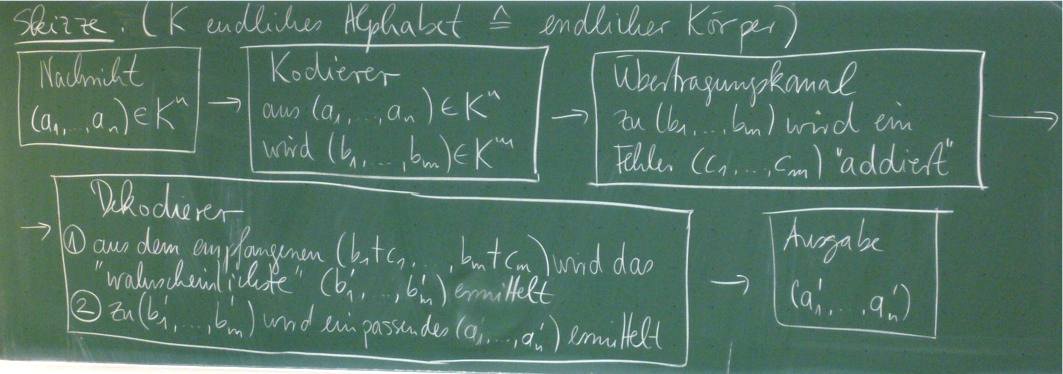 Skizze. (K endliches Alphabet ≙ endlicher Körper)
Nachricht
(a₁,...,aₙ) ∈ Kⁿ
→
Kodierer
aus (a₁,...,aₙ) ∈ Kⁿ
wird (b₁,...,bₘ) ∈ Kᵐ
→
Übertragungskanal
zu (b₁,...,bₘ) wird ein
Fehler (c₁,...,cₘ) "addiert"
→
→
Dekodierer
① aus dem empfangenen (b₁+c₁,...,bₘ+cₘ) wird das
"wahrscheinlichste" (b₁',...,bₘ') ermittelt
② zu (b₁',...,bₘ') wird ein passendes (a₁',...,aₙ') ermittelt
→
Ausgabe
(a₁',...,aₙ')